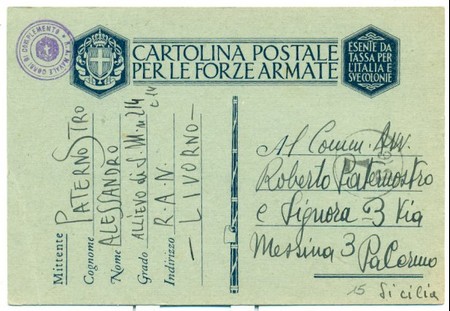 CARTOLINA POSTALE
PER LE FORZE ARMATE
ESENTE DA
TASSA PER
L'ITALIA E
SVE COLONIE
Mittente
Cognome PATERNOSTRO
Nome ALESSANDRO
Grado ALLIEVO di S. M. n. 214
Indirizzo R. A. N.
— LIVORNO —
Al Comm. Avv.
Roberto Paternostro
e Signora
Via
Messina 3 Palermo
15 Sicilia